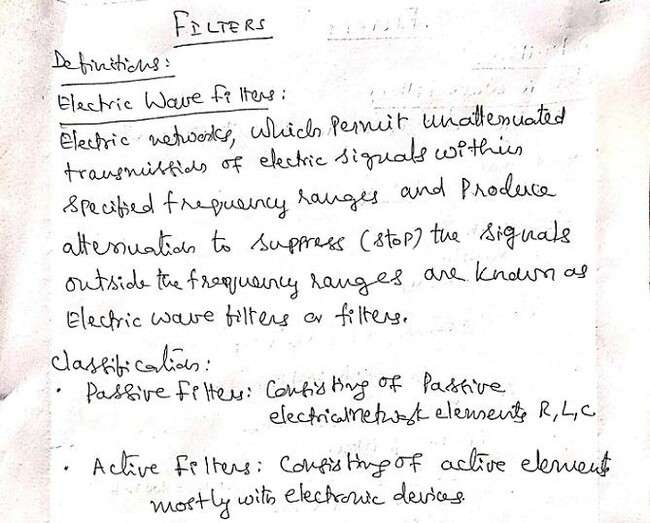 FILTERS
Definitions:
Electric Wave Filters:
Electric networks, which permit unattenuated
transmission of electric signals within
specified frequency ranges and produce
attenuation to suppress (stop) the signals
outside the frequency ranges are known as
Electric wave filters or filters.
Classification:
• Passive Filters: Consisting of Passive
electrical network elements R, L, C
• Active Filters: Consisting of active element
mostly with electronic devices.